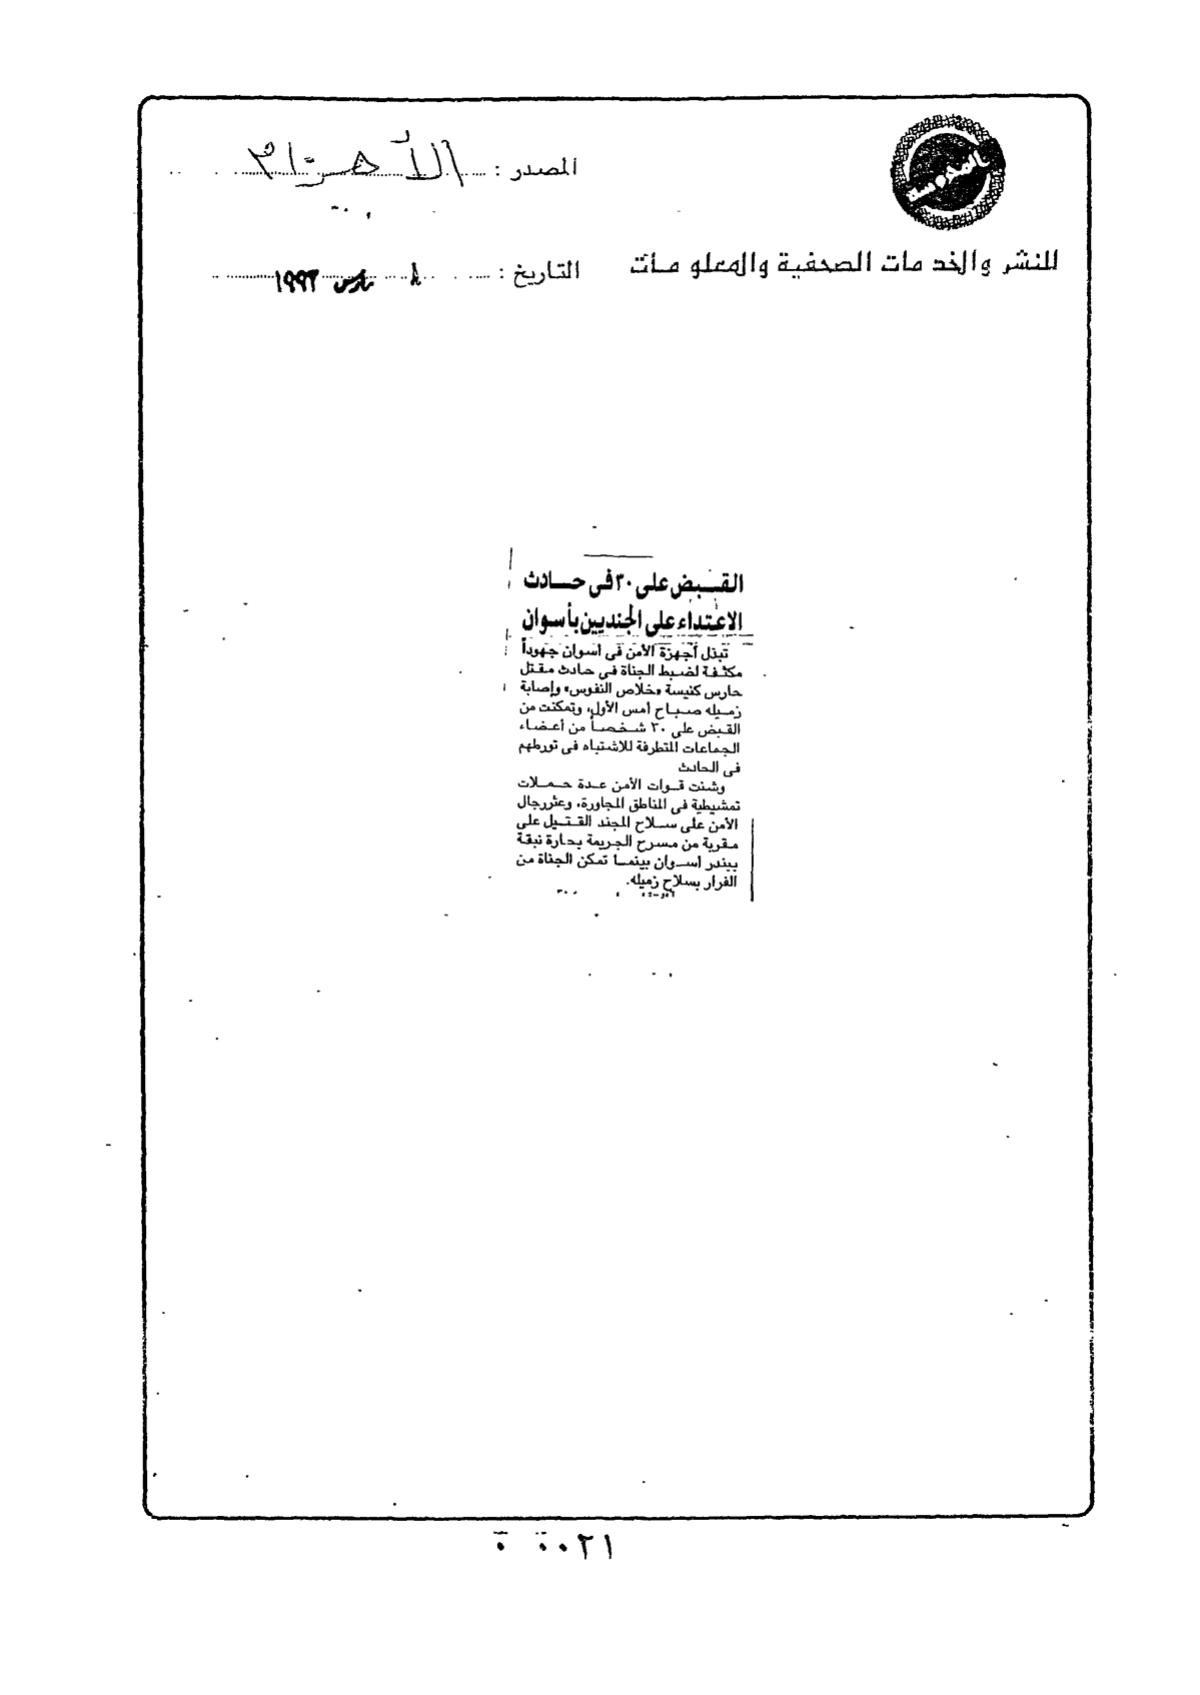 المصدر : الأهرام
للنشر والخدمات الصحفية والمعلومات
التاريخ : ٨ مارس ١٩٩٣
القبض على ٣٠ فى حادث
الاعتداء على الجنديين بأسوان
تبذل أجهزة الأمن فى أسوان جهوداً
مكثفة لضبط الجناة فى حادث مقتل
حارس كنيسة «خلاص النفوس» وإصابة
زميله صباح أمس الأول، وتمكنت من
القبض على ٣٠ شخصاً من أعضاء
الجماعات المتطرفة للاشتباه فى تورطهم
فى الحادث
وشنت قوات الأمن عدة حملات
تمشيطية فى المناطق المجاورة، وعثر رجال
الأمن على سلاح المجند القتيل على
مقربة من مسرح الجريمة بحارة نبقة
ببندر أسوان بينما تمكن الجناة من
الفرار بسلاح زميله.